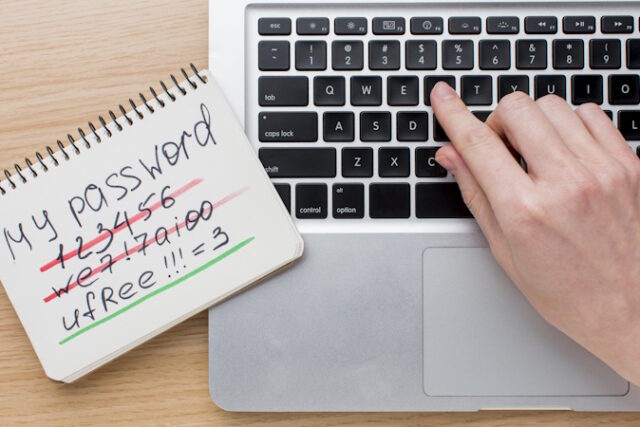 My password
123456
we7!7aioo
ufree!!!=3
esc
~ ! @ # $ % ^ & * (
` 1 2 3 4 5 6 7 8 9
tab Q W E T Y U I O
caps lock A S D
shift Z X C
alt
control option